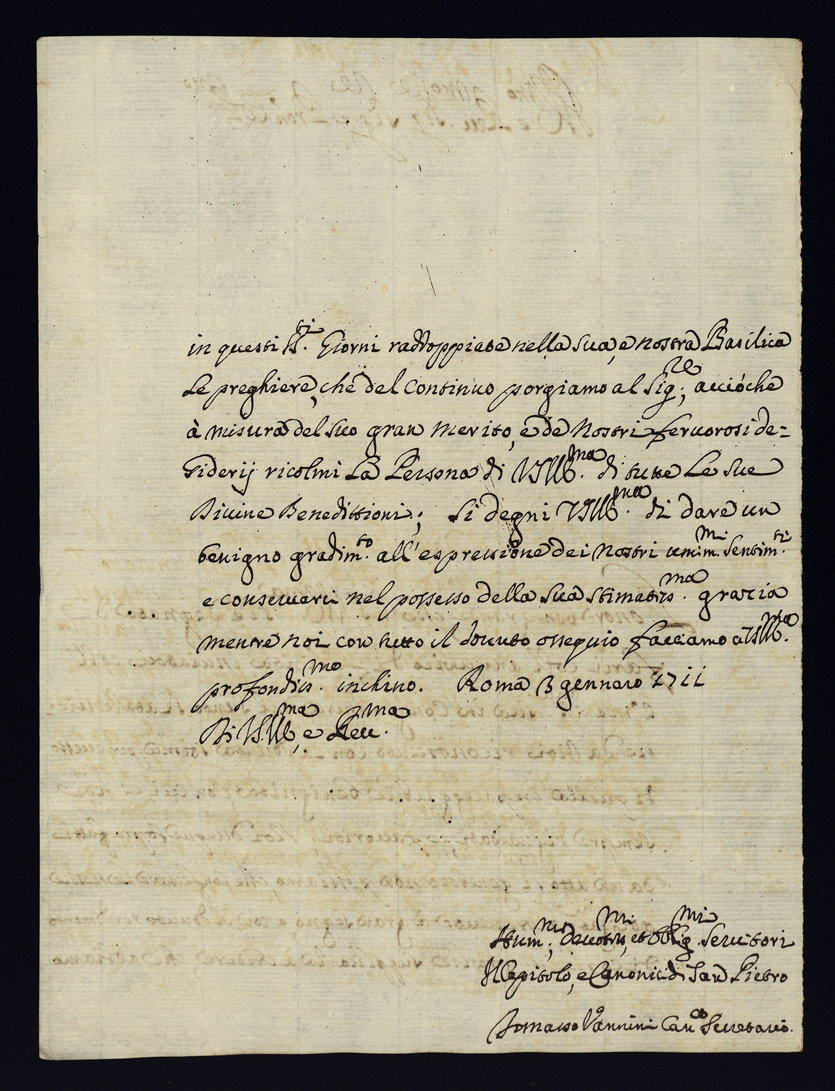 in questi S.ti Giorni raddoppiate nella sua, e nostra Basilica
Le preghiere, che del continuo porgiamo al Sig.re; acciòche
à misura del suo gran merito, e de Nostri fervorosi de=
siderij ricolmi La Persona di V.S.Ill.ma di tutte Le sue
Divine Benedittioni; Si degni V.S.Ill.ma di dare un
benigno gradim.to all'espressione dei Nostri um.mi Sentim.ti
e conservarci nel possesso della sua stimatiss.ma grazia
mentre noi con tutto il dovuto ossequio facciamo a V.S.Ill.ma
profondiss.mo inchino. Roma 3 gennaro 1711
Di V.S.Ill.ma, e Rev.ma
Hum.mi, devotis.mi, et Obblig.mi Servitori
Il Capitolo, e Canonici di San Pietro
Tomasso Vannini Can.co Secretario.